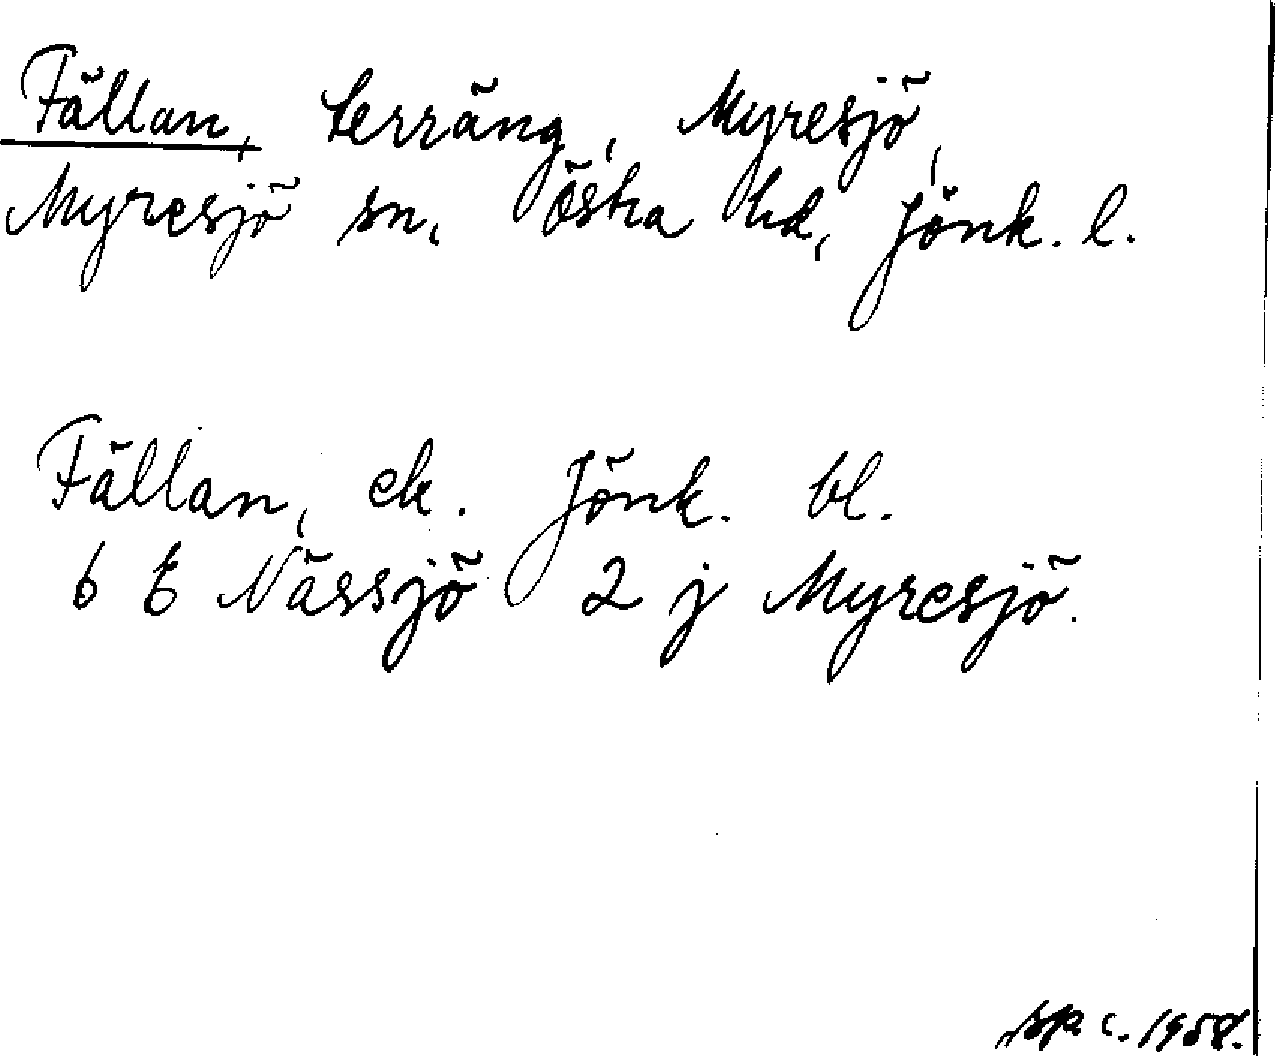 Fällan, terräng, Myresjö,
Myresjö sn, Östra hd, Jönk. l.
Fällan, ek. Jönk. bl.
6 E Nässjö 2 j Myresjö.
c. 1958.